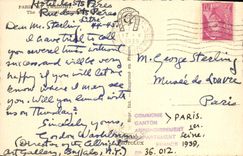 Hotel des Sts Pères
Rue des Sts Pères
Paris
Dear Mr. Sterling,
I have tried to call
you several times without
success and will be very
happy if you will let me
know where I may see
you. Will you lunch with
us on Thursday?
Sincerely yours,
Gordon Washburn
(Director of the Albright
Art Gallery, Buffalo, N.Y.)
M. George Sterling
Musée de Louvre
Paris
COMMUNE
CANTON
PARIS.
Seine.
1939.
36.012.